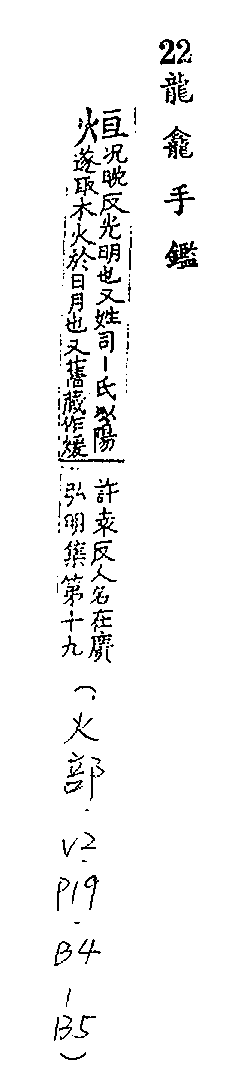 22龍龕手鑑
烜况晚反光明也又姓司丨氏以陽
遂取木火於日月也又舊藏作煖
許袁反人名在廣
弘明集第十九
(火部.V2.P19.B4-B5)